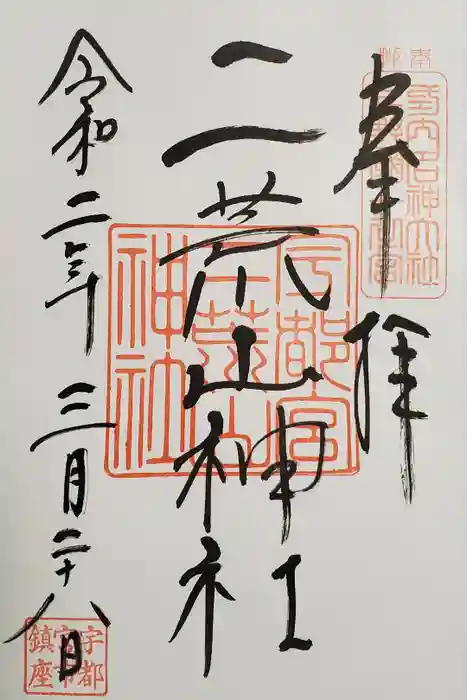 奉拝
二荒山神社
令和二年三月二十八日
宇都宮
二荒山
神社
宇都
宮市
鎮座